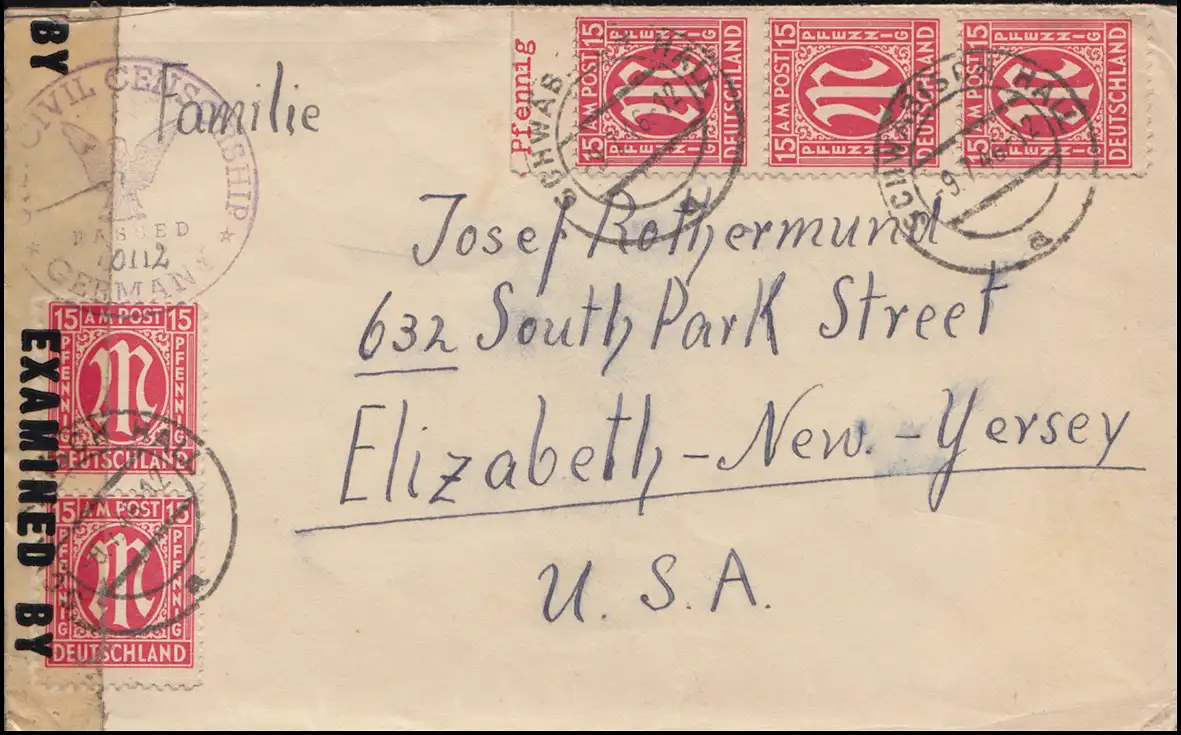 BY
CIVIL CENSORSHIP
PASSED
GERMANY
EXAMINED BY
Familie
Pfennig
15 AM POST 15
PFENNIG PFENNIG
M
DEUTSCHLAND
15 AM POST 15
PFENNIG PFENNIG
M
DEUTSCHLAND
15 AM POST 15
PFENNIG PFENNIG
M
DEUTSCHLAND
SCHWÄB HALL
a
SCHWÄBISCH HALL
-9.7.46-12
a
Josef Rothermund
632 South Park Street
Elizabeth - New. - Yersey
U. S. A.
15 AM POST 15
PFENNIG PFENNIG
M
DEUTSCHLAND
15 AM POST 15
PFENNIG PFENNIG
M
DEUTSCHLAND
CH HALL
a